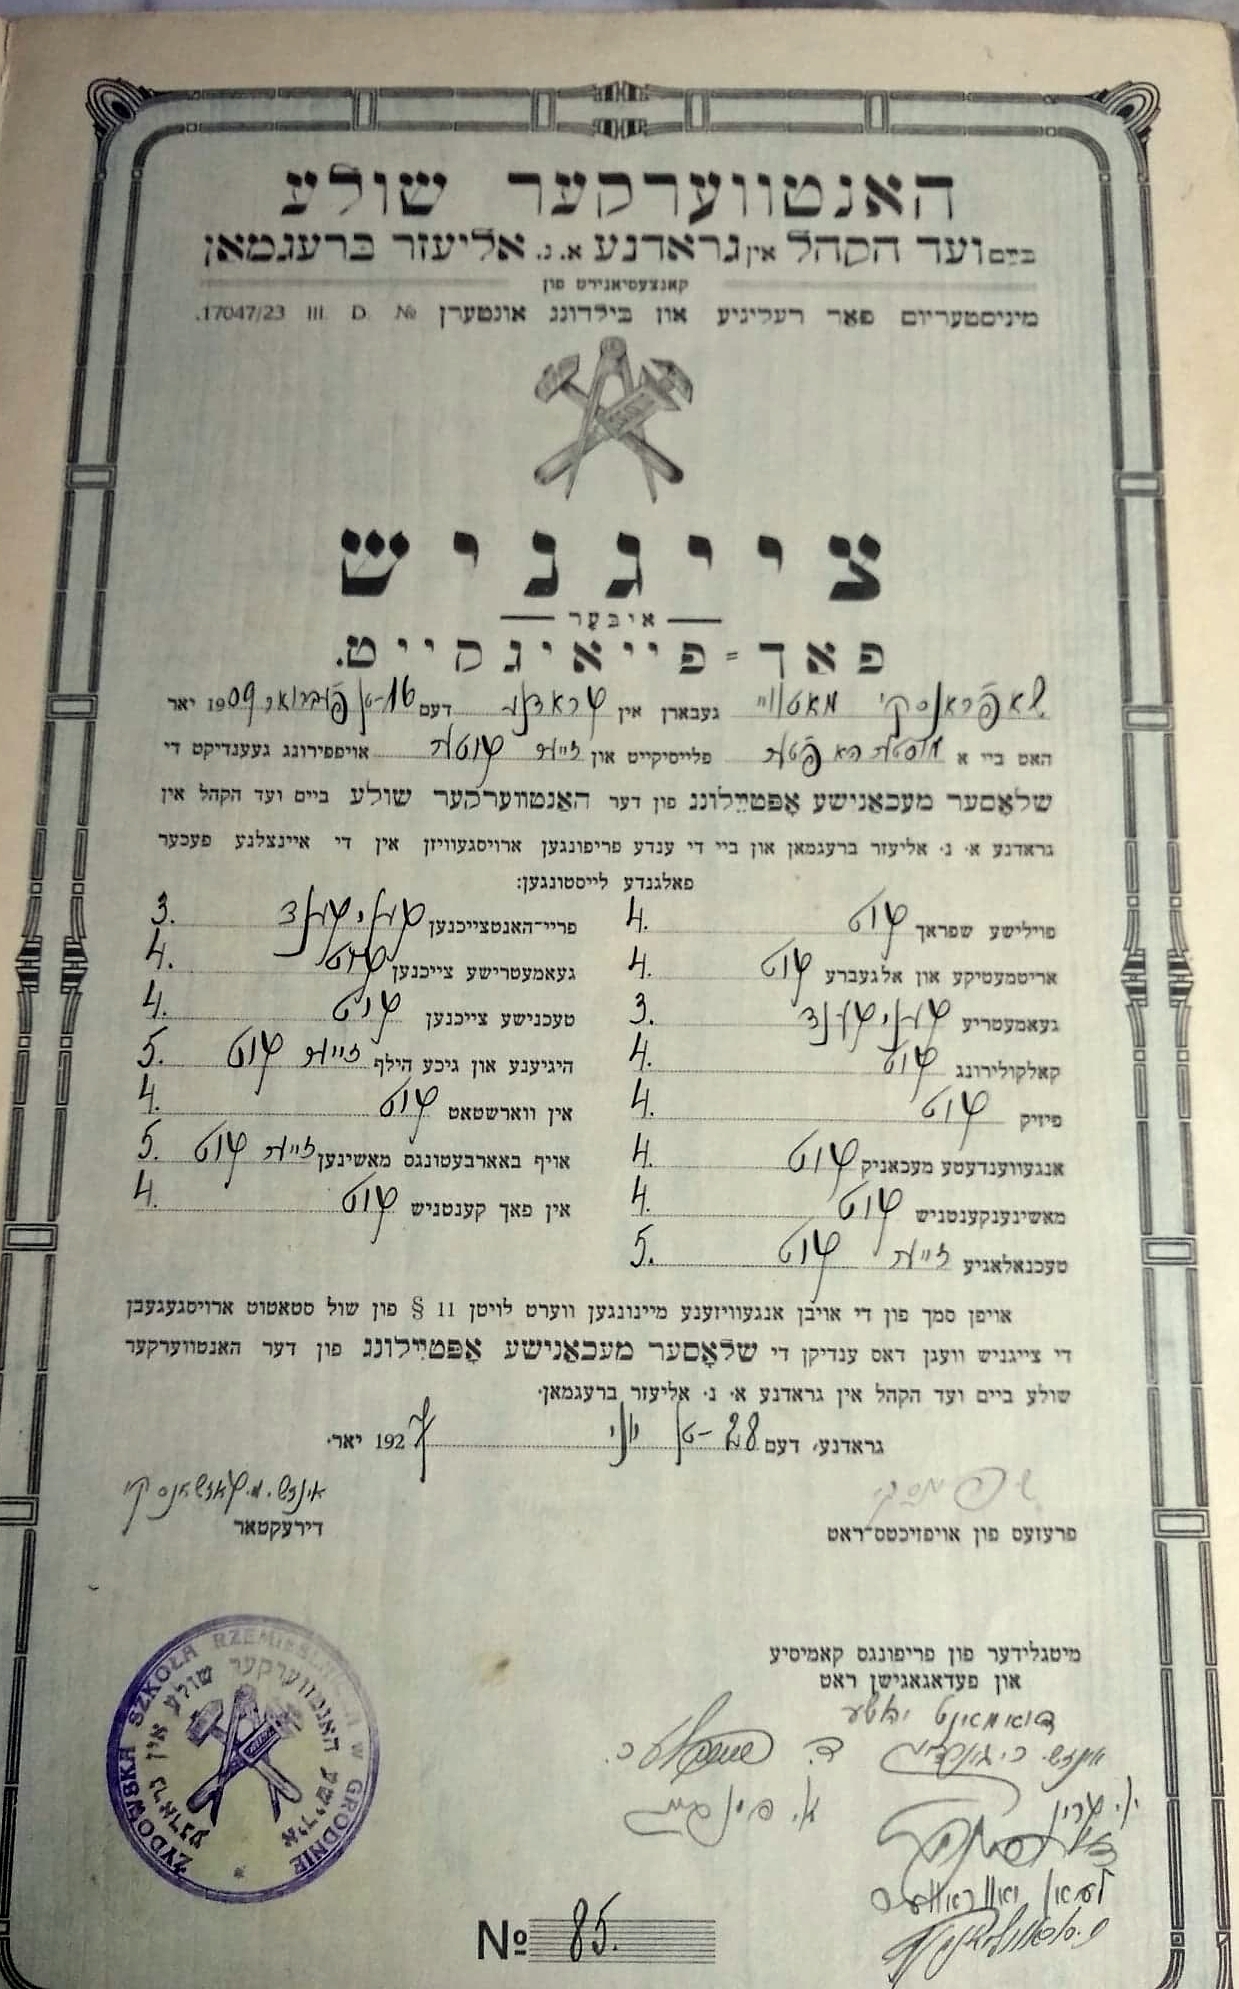 האנטווערקער שולע
ביים ועד הקהל אין גראדנע א. נ. אליעזר ברעגמאן
קאנצעסיאנירט פון
מיניסטעריום פאר רעליגיע און בילדונג אונטערן № D. III. 17047/23.
צייגניש
איבער
פאך=פייאיגקייט.
מאטוויי געבארן אין גראדנע דעם 16-טן פעברואר 1909 יאר
האט ביי א פלייסיקייט און זייער גוטער אויפפירונג געענדיקט די
שלאָסער מעכאַנישע אָפּטיילונג פון דער האַנטווערקער שולע ביים ועד הקהל אין
גראדנע א. נ. אליעזר ברעגמאן און ביי די ענדע פריפונגען ארויסגעוויזן אין די איינצלנע פעכער
פאלגנדע לייסטונגען:
פוילישע שפראך גוט 4.
אריטמעטיקע און אלגעברע גוט 4.
געאמעטריע געניגענד 3.
קאלקולירונג גוט 4.
פיזיק גוט 4.
אנגעווענדעטע מעכאניק גוט 4.
מאשינענקענטניש גוט 4.
טעכנאלאגיע זייער גוט 5.
פריי־האנטצייכנען געניגענד 3.
געאמעטרישע צייכנען גוט 4.
טעכנישע צייכנען גוט 4.
היגיענע און גיכע הילף זייער גוט 5.
אין ווארשטאט גוט 4.
אויף באארבעטונגס מאשינען זייער גוט 5.
אין פאך קענטניש גוט 4.
אויפן סמך פון די אויבן אנגעוויזענע מיינונגען ווערט לויטן § 11 פון שול סטאטוט ארויסגעגעבן
די צייגניש וועגן דאס ענדיקן די שלאָסער מעכאַנישע אָפּטיילונג פון דער האנטווערקער
שולע ביים ועד הקהל אין גראדנע א. נ. אליעזר ברעגמאן.
גראדנע, דעם 28-טן יוני 1927 יאר.
פרעזעס פון אויפזיכטס־ראט
דירעקטאר
מיטגלידער פון פריפונגס קאמיסיע
און פעדאגאגישן ראט
ŻYDOWSKA SZKOŁA RZEMIEŚLNICZA W GRODNIE
אידישע האנטווערקער שולע אין גראדנע
№ 85.